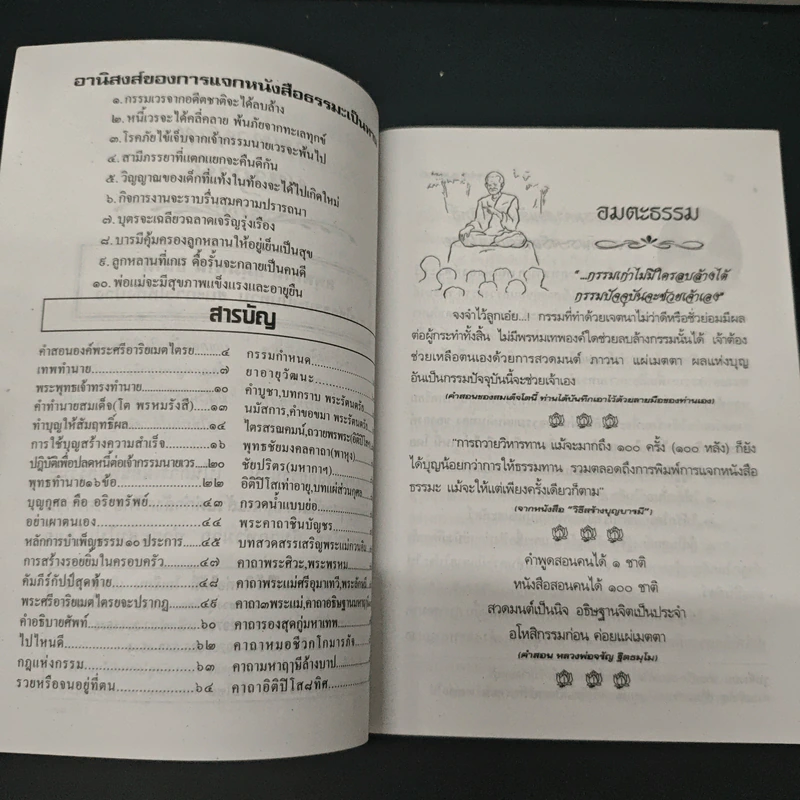 อานิสงส์ของการแจกหนังสือธรรมะเป็น
๑. กรรมเวรจากอดีตชาติจะได้ลบล้าง
๒. หนี้เวรจะได้คลี่คลาย พ้นภัยจากทะเลทุกข์
๓. โรคภัยไข้เจ็บจากเจ้ากรรมนายเวรจะพ้นไป
๔. สามีภรรยาที่แตกแยกจะคืนดีกัน
๕. วิญญาณของเด็กที่แท้งในท้องจะได้ไปเกิดใหม่
๖. กิจการงานจะราบรื่นสมความปรารถนา
๗. บุตรจะเฉลียวฉลาดเจริญรุ่งเรือง
๘. บารมีคุ้มครองลูกหลานให้อยู่เย็นเป็นสุข
๙. ลูกหลานที่เกเร ดื้อรั้นจะกลายเป็นคนดี
๑๐. พ่อแม่จะมีสุขภาพแข็งแรงและอายุยืน
สารบัญ
คำสอนองค์พระศรีอาริยเมตไตรย........๔
เทพทำนาย........๗
พระพุทธเจ้าทรงทำนาย........๑๐
คำทำนายสมเด็จ(โต พรหมรังสี)........๑๓
ทำบุญให้สัมฤทธิ์ผล........๑๔
การใช้บุญสร้างความสำเร็จ........๑๖
ปฏิบัติเพื่อปลดหนี้ต่อเจ้ากรรมนายเวร...๒๐
พุทธทำนาย๑๖ข้อ........๒๒
บุญกุศล คือ อริยทรัพย์........๔๓
อย่าเผาตนเอง........๔๔
หลักการบำเพ็ญธรรม ๑๐ ประการ.....๔๕
การสร้างรอยยิ้มในครอบครัว........๔๗
คัมภีร์กัปป์สุดท้าย........๔๘
พระศรีอาริยเมตไตรยจะปรากฏ........๔๙
คำอธิบายศัพท์........๖๐
ไปไหนดี........๖๒
กฎแห่งกรรม........๖๓
รวยหรือจนอยู่ที่ตน........๖๔
กรรมกำหนด........
ยาอายุวัฒนะ........
คำบูชา,บทกราบ พระรัตนตรัย
นมัสการ,คำขอขมา พระรัตนตรัย
ไตรสรณคมน์,ถวายพรพระ(อิติปิโส
พุทธชัยมงคลคาถา(พาหุง)
ชัยปริตร(มหากาฯ)
อิติปิโสเท่าอายุ,บทแผ่ส่วนกุศล
กรวดน้ำแบบย่อ
พระคาถาชินบัญชร
บทสวดสรรเสริญพระแม่กวนอิม
คาถาพระศิวะ,พระพรหม
คาถาพระแม่ศรีอุมาเทวี,พระลักษมี
คาถา๓พระแม่,คาถาอธิษฐาน
คาถารองสุดกู่มหาเทท
คาถาหมอชีวกโกมารภัจ
คาถามหาฤาษีล้างบาป
คาถาอิติปิโส๘ทิศ
อมตะธรรม
"...กรรมเก่าไม่มีใครลบล้างได้
กรรมปัจจุบันจะช่วยเจ้าเอง"
จงจำไว้ลูกเอ๋ย...! กรรมที่ทำด้วยเจตนาไม่ว่าดีหรือชั่วย่อมมีผล
ต่อผู้กระทำทั้งสิ้น ไม่มีพรหมเทพองค์ใดช่วยลบล้างกรรมนั้นได้ เจ้าต้อง
ช่วยเหลือตนเองด้วยการสวดมนต์ ภาวนา แผ่เมตตา ผลแห่งบุญ
อันเป็นกรรมปัจจุบันนี้จะช่วยเจ้าเอง
(คำสอนของสมเด็จโตนี้ ท่านได้บันทึกเอาไว้ด้วยลายมือของท่านเอง)
"การถวายวิหารทาน แม้จะมากถึง ๑๐๐ ครั้ง (๑๐๐ หลัง) ก็ยัง
ได้บุญน้อยกว่าการให้ธรรมทาน รวมตลอดถึงการพิมพ์การแจกหนังสือ
ธรรมะ แม้จะให้แต่เพียงครั้งเดียวก็ตาม"
(จากหนังสือ "วิธีสร้างบุญบารมี")
คำพูดสอนคนได้ ๑ ชาติ
หนังสือสอนคนได้ ๑๐๐ ชาติ
สวดมนต์เป็นนิจ อธิษฐานจิตเป็นประจำ
อโหสิกรรมก่อน ค่อยแผ่เมตตา
(คำสอน หลวงพ่อจรัญ ฐิตธมฺโม)